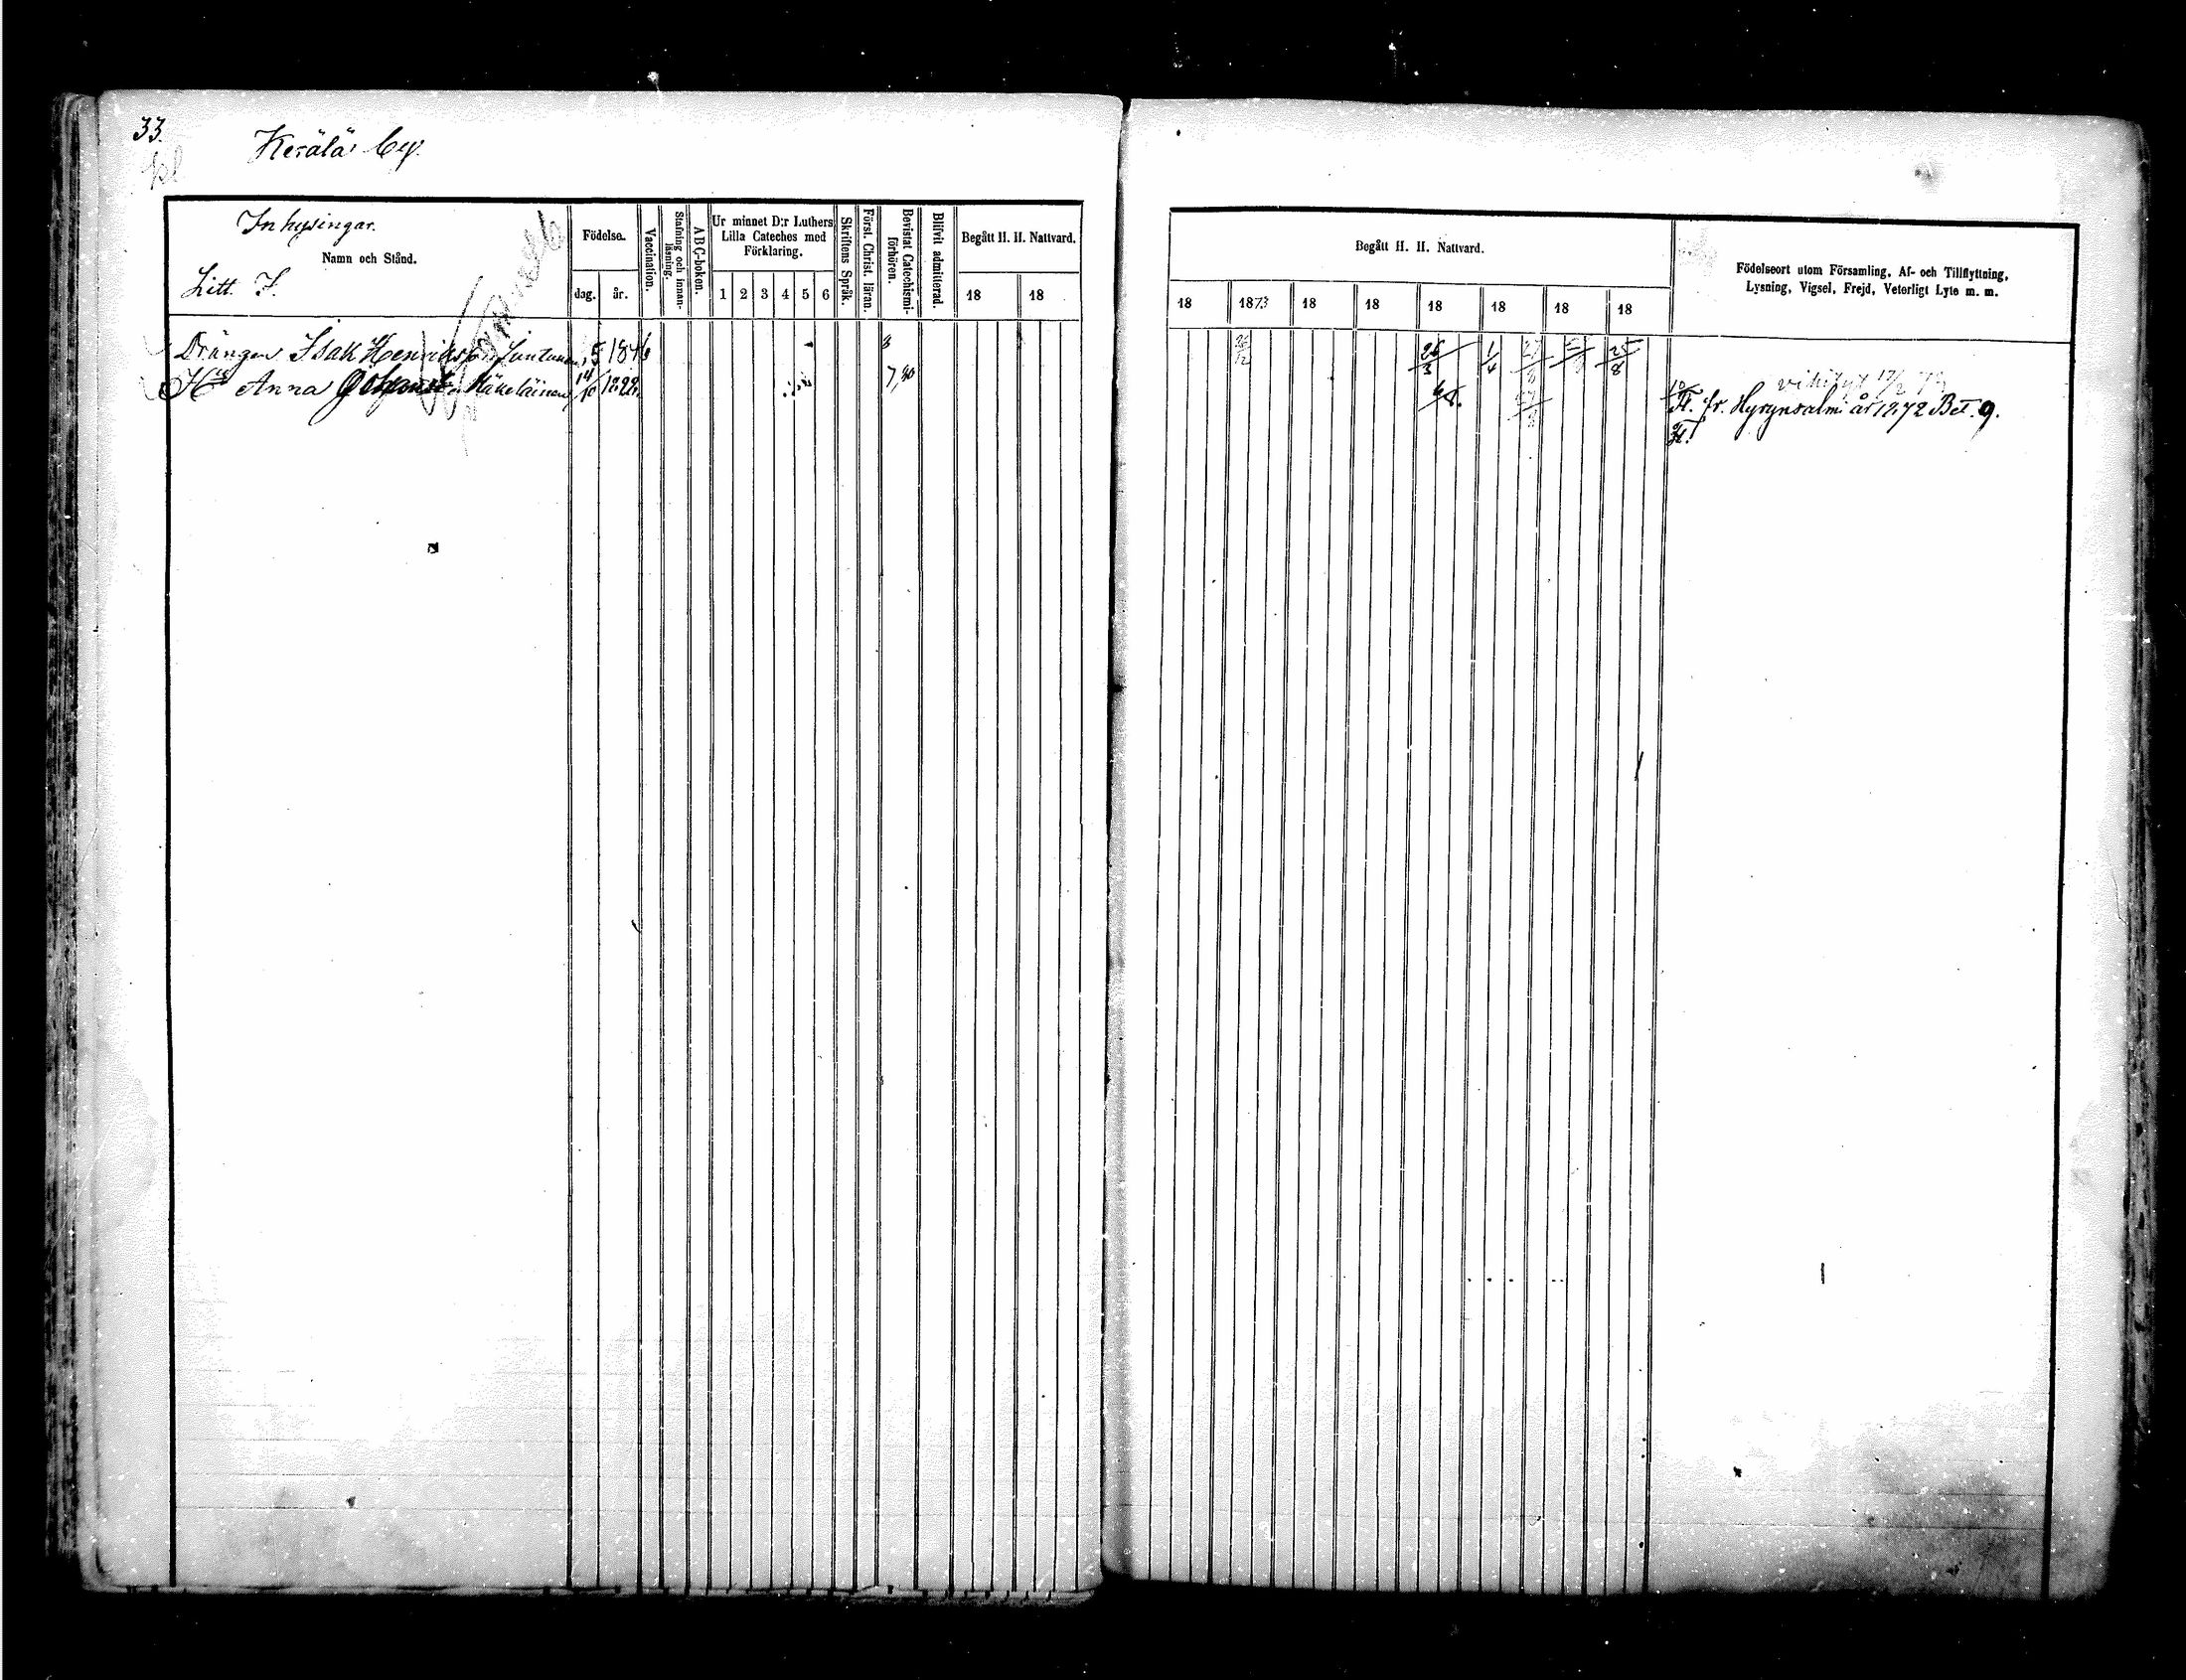 33.
Kerälä by.
Inhysingar.
Namn och Stånd.
Litt. I.
Födelse.
dag. år.
Vaccination.
Stafning och innan-
läsning.
ABC-boken.
Ur minnet D:r Luthers
Lilla Cateches med
Förklaring.
1 2 3 4 5 6
Skriftens Språk.
Först. Christ. läran.
Bevistat Catechismi-
förhören.
Blifvit admitterad.
Begått H. H. Nattvard.
18 18
Drängen Isak Henriksson Juntunen 1846 8
Hu Anna Mäkeläinen 14/10 1822. 7,80
Begått H. H. Nattvard.
18 1873 18 18 18 18 18 18
Födelseort utom Församling, Af- och Tillflyttning,
Lysning, Vigsel, Frejd, Veterligt Lyte m. m.
26/3 1/4 25/8
vihityt
fr. Hyrynsalmi år 1872 Bet. 9.